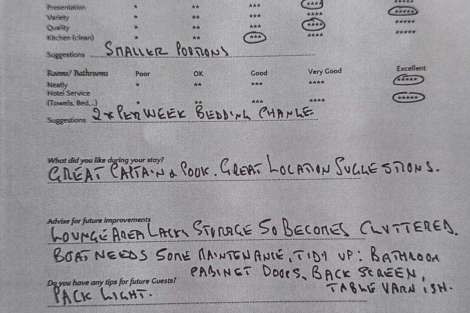 Presentation * ** *** **** *****
Variety * ** *** **** *****
Quality * ** *** **** *****
Kitchen (clean) * ** *** ****
Suggestions SMALLER PORTIONS
Rooms/ Bathrooms Poor OK Good Very Good Excellent
Neatly * ** *** **** *****
Hotel Service
(Towels, Bed,..) * ** *** **** *****
Suggestions 2 x PER WEEK BEDDING CHANGE
What did you like during your stay?
GREAT CAPTAIN & COOK. GREAT LOCATION SUGGESTIONS.
Advise for future improvements
LOUNGE AREA LACKS STORAGE SO BECOMES CLUTTERED.
BOAT NEEDS SOME MAINTENANCE, TIDY UP: BATHROOM
CABINET DOORS, BACK SCREEN,
Do you have any tips for future Guests? TABLE VARNISH.
PACK LIGHT.